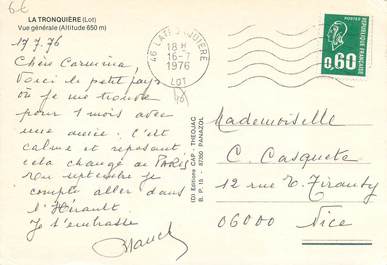 6€
LA TRONQUIÈRE (Lot)
Vue générale (Altitude 650 m)
17.7.76
Chère Carmina,
Voici le petit pays
où je me trouve
pour 1 mois avec
une amie. C'est
calme et reposant
cela change de PARIS
En septembre je
compte aller dans
l'Hérault.
Je t'embrasse
46 LATRONQUIÈRE
18 H
16-7
1976
LOT
REPUBLIQUE FRANÇAISE
POSTES
0,60
(D) Editions CAP - THEOJAC
B. P. 15 - 87350 PANAZOL
Mademoiselle
C. Casqueta
12 rue
06000 Nice